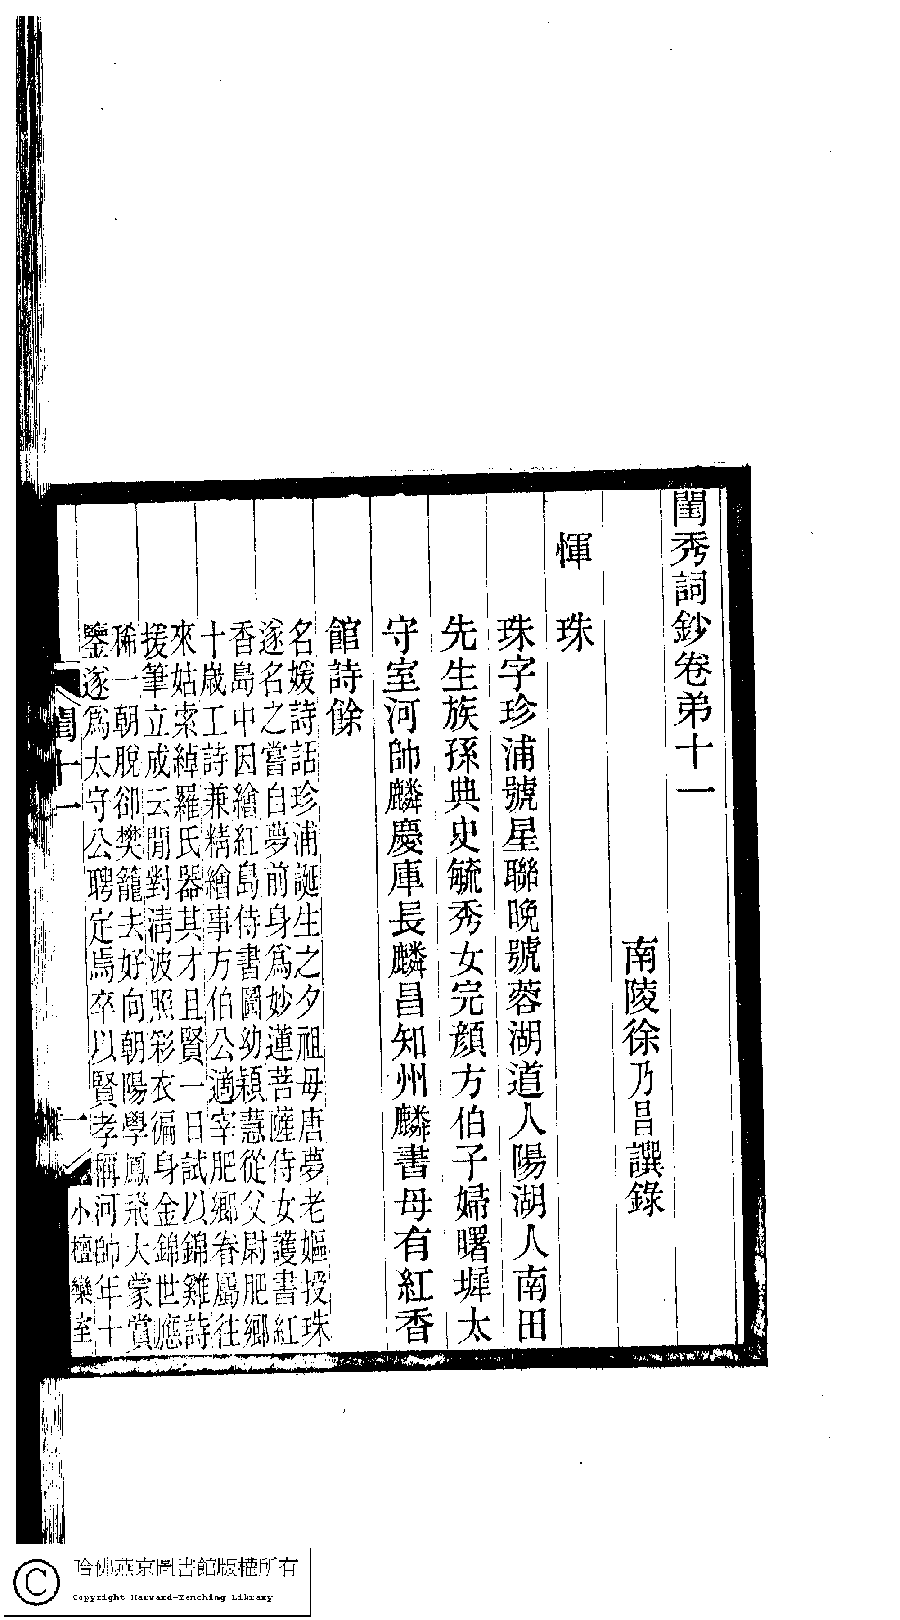 閨秀詞鈔卷弟十一
南陵徐乃昌譔錄
惲珠
珠字珍浦號星聯晚號蓉湖道人陽湖人南田
先生族孫典史毓秀女完顏方伯子婦曙墀太
守室河帥麟慶庫長麟昌知州麟書母有紅香
館詩餘
名媛詩話珍浦誕生之夕祖母唐夢老嫗授珠
遂名之嘗自夢前身爲妙蓮菩薩侍女護書紅
香島中因繪紅島侍書圖幼穎慧從父尉肥鄉
十歲工詩兼精繪事方伯公適宰肥鄉眷屬往
來姑索綽羅氏器其才且賢一日試以錦雞詩
援筆立成云閒對清波照彩衣徧身金錦世應
稀一朝脫卻樊籠去好向朝陽學鳳飛大蒙賞
鑒遂爲太守公聘定焉卒以賢孝稱河帥年十
閨十一
一
小檀欒室
哈佛燕京圖書館版權所有
Copyright Harvard-Yenching Library